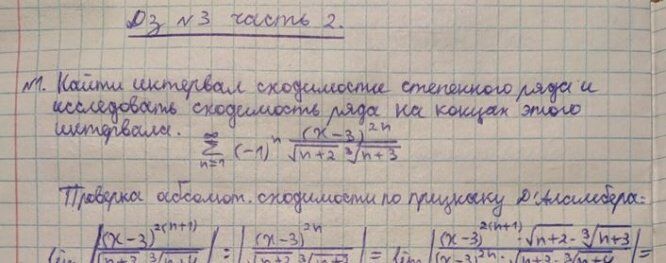 ДЗ №3 часть 2.
№1. Найти интервал сходимости степенного ряда и
исследовать сходимость ряда на концах этого
интервала. ∞ ∑ n=1 (-1)^n (x-3)^{2n} / (√(n+2) ∛(n+3))
Проверка абсолют. сходимости по признаку Д'Аламбера:
lim |(x-3)^{2(n+1)} / (√(n+3) ∛(n+4))| : |(x-3)^{2n} / (√(n+2) ∛(n+3))| = lim |(x-3)^{2(n+1)} · √(n+2) · ∛(n+3) / (x-3)^{2n} ·